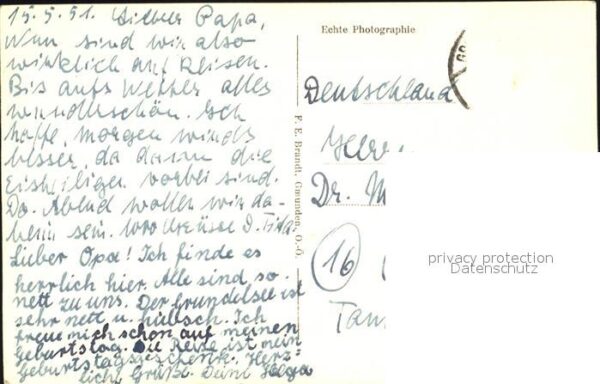 15.5.51. Lieber Papa,
Nun sind wir also
wirklich auf Reisen.
Bis aufs Wetter alles
wunderschön. Ich
hoffe, morgen wirds
besser, da dann die
Eisheiligen vorbei sind.
Do. Abend wollen wir da-
heim sein. 1000 Grüsse D.
Lieber Opa! Ich finde es
herrlich hier. Alle sind so
nett zu uns. Der Grundelsee ist
sehr nett u. hübsch. Ich
freue mich schon auf meinen
Geburtstag. Die Reise ist mein
Geburtstagsgeschenk. Herz-
liche Grüße Deine Helga
Echte Photographie
F. E. Brandt, Gmunden, O.-Ö.
Deutschland
Herr
Dr. M
16
Tan
privacy protection
Datenschutz